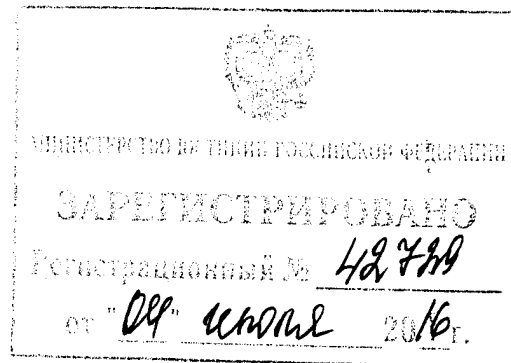 МИНИСТЕРСТВО ЮСТИЦИИ РОССИЙСКОЙ ФЕДЕРАЦИИ
ЗАРЕГИСТРИРОВАНО
Регистрационный № 42729
от "04" июля 2016 г.